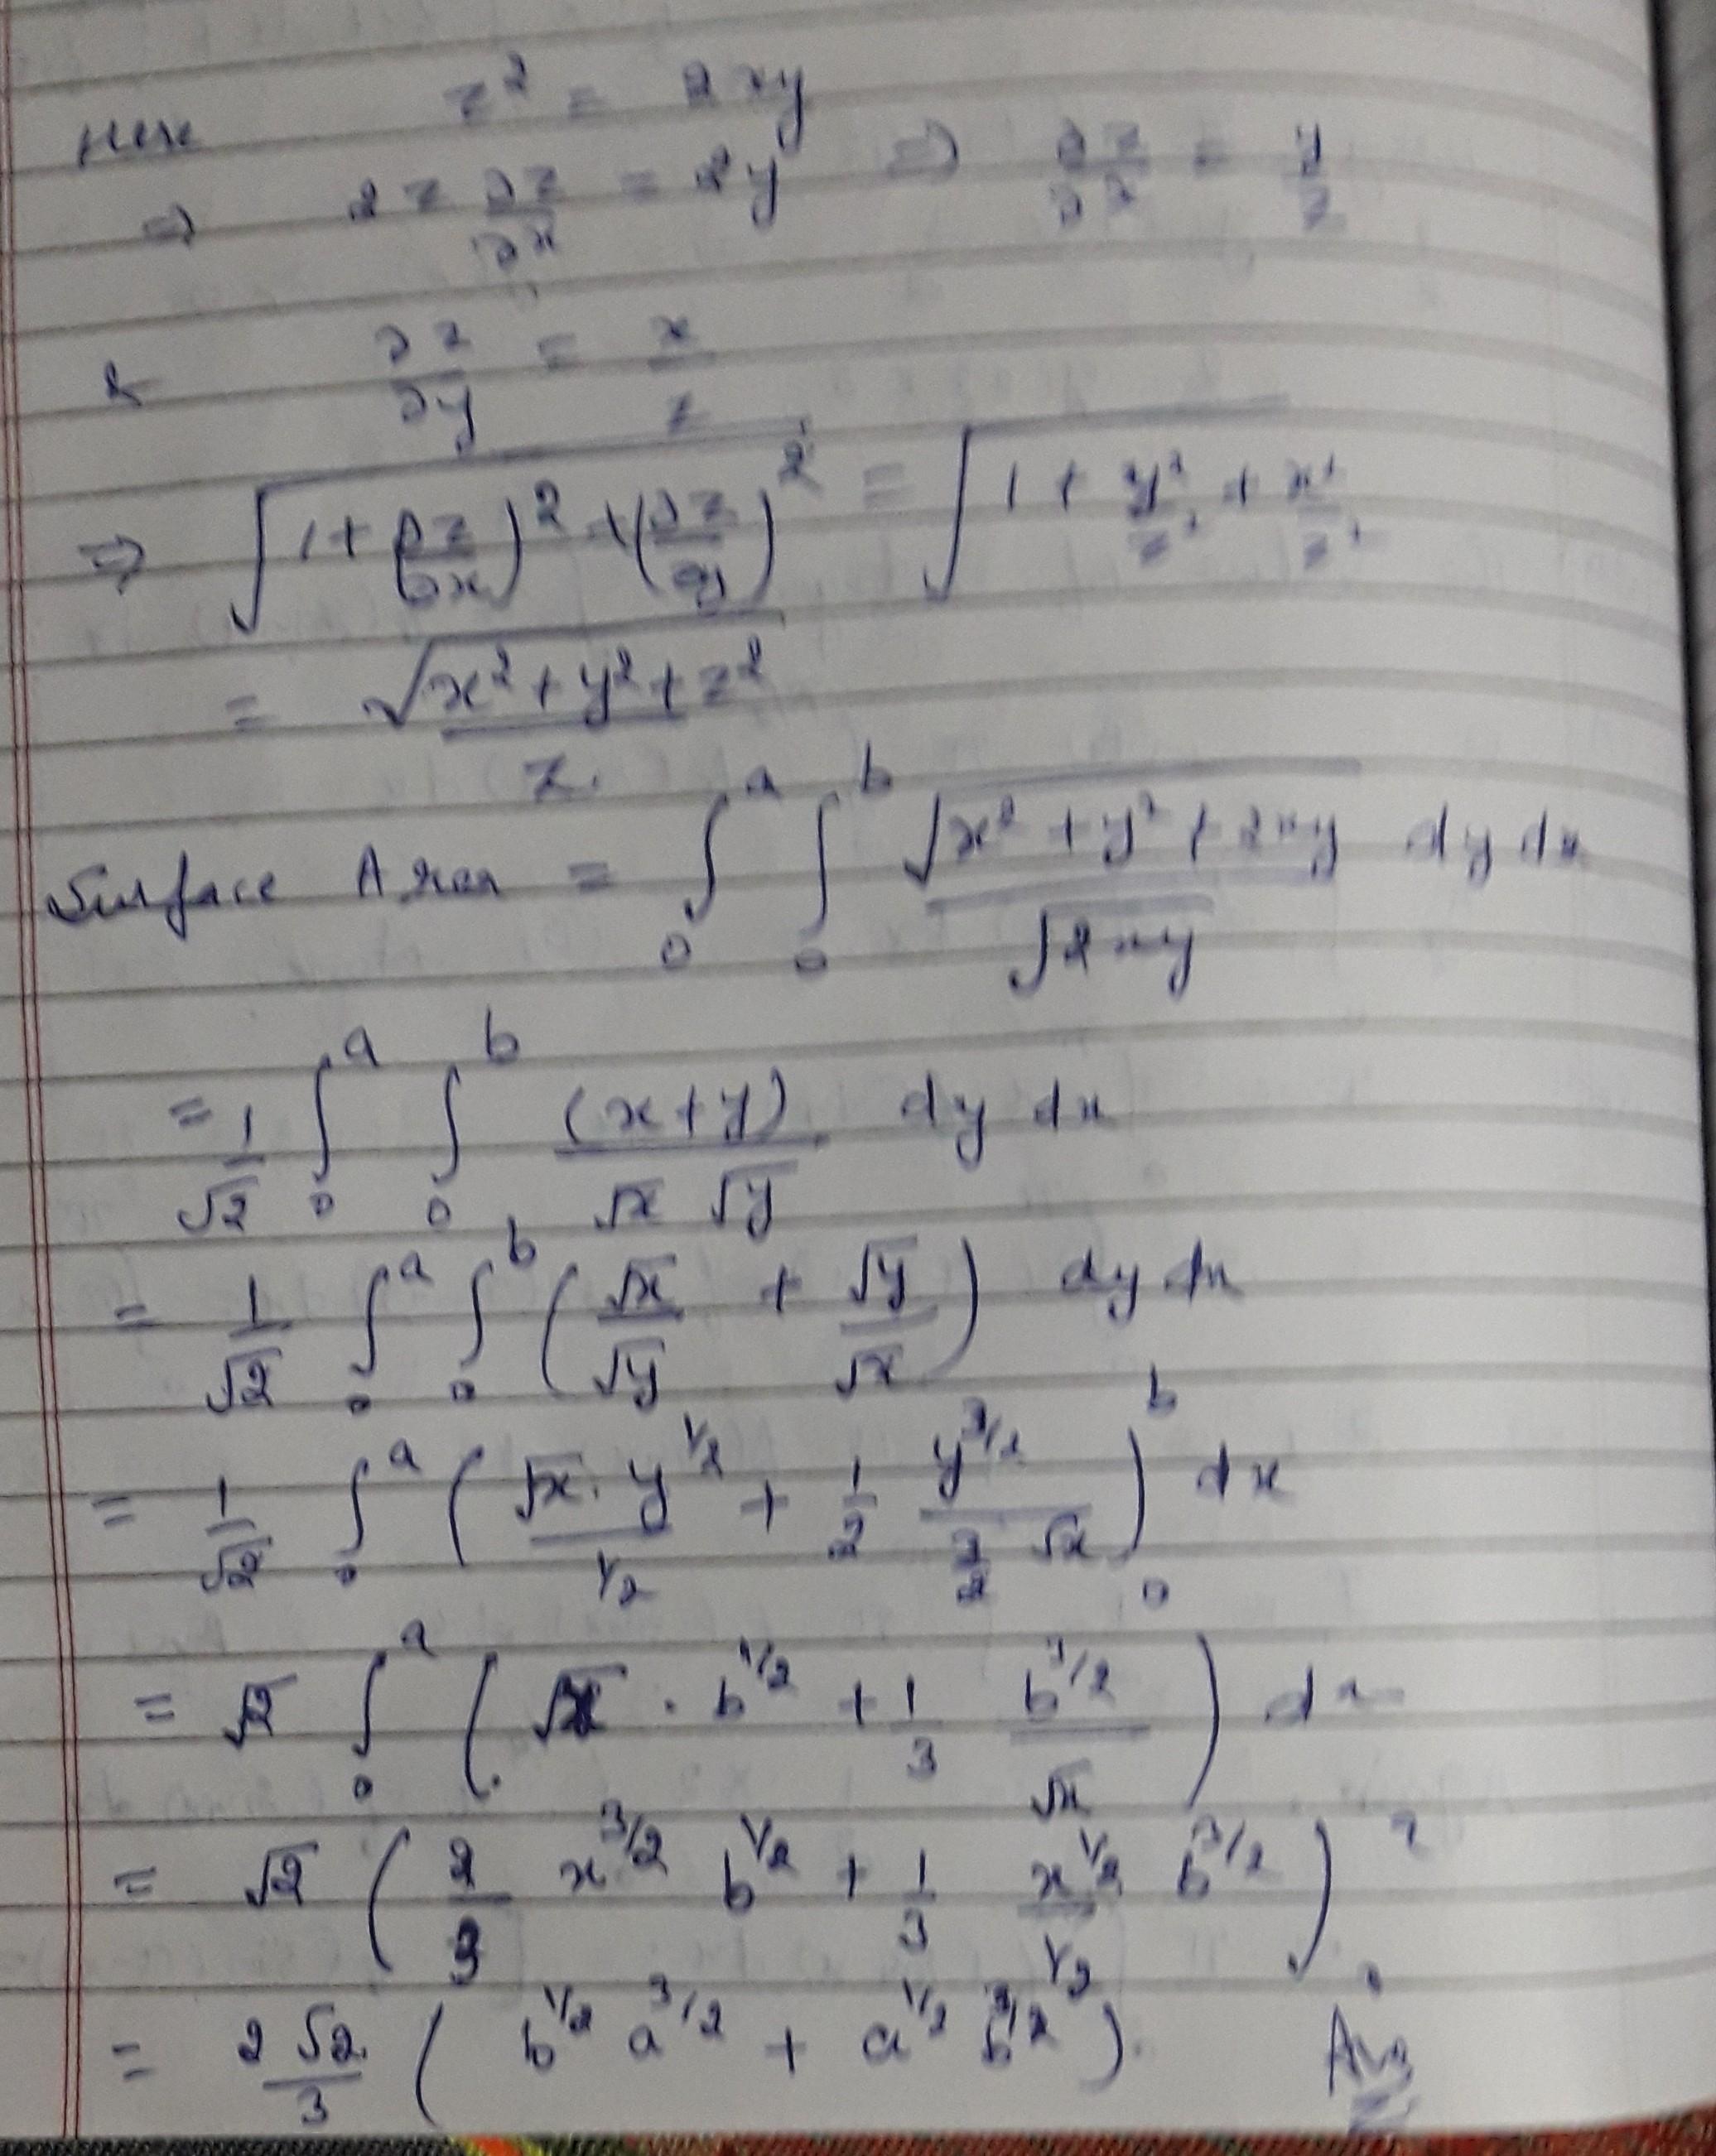 Here z² = 2xy
⇒ 2z ∂z/∂x = 2y ⇒ ∂z/∂x = y/z
& ∂z/∂y = x/z
⇒ √(1 + (∂z/∂x)² + (∂z/∂y)²) = √(1 + y²/z² + x²/z²)
= √(x² + y² + z²) / z.
Surface Area = ∫₀ᵃ ∫₀ᵇ √(x² + y² + 2xy) / √(2xy) dy dx
= 1/√2 ∫₀ᵃ ∫₀ᵇ (x+y) / (√x √y) dy dx
= 1/√2 ∫₀ᵃ ∫₀ᵇ (√x/√y + √y/√x) dy dx
= 1/√2 ∫₀ᵃ (√x · y^(1/2) / (1/2) + 1/2 y^(3/2) / (3/2 √x))₀ᵇ dx
= √2 ∫₀ᵃ (√x · b^(1/2) + 1/3 b^(3/2)/√x) dx
= √2 (2/3 x^(3/2) b^(1/2) + 1/3 x^(1/2)/(1/2) b^(3/2))₀ᵃ
= 2√2/3 (b^(1/2) a^(3/2) + a^(1/2) b^(3/2)). Ans